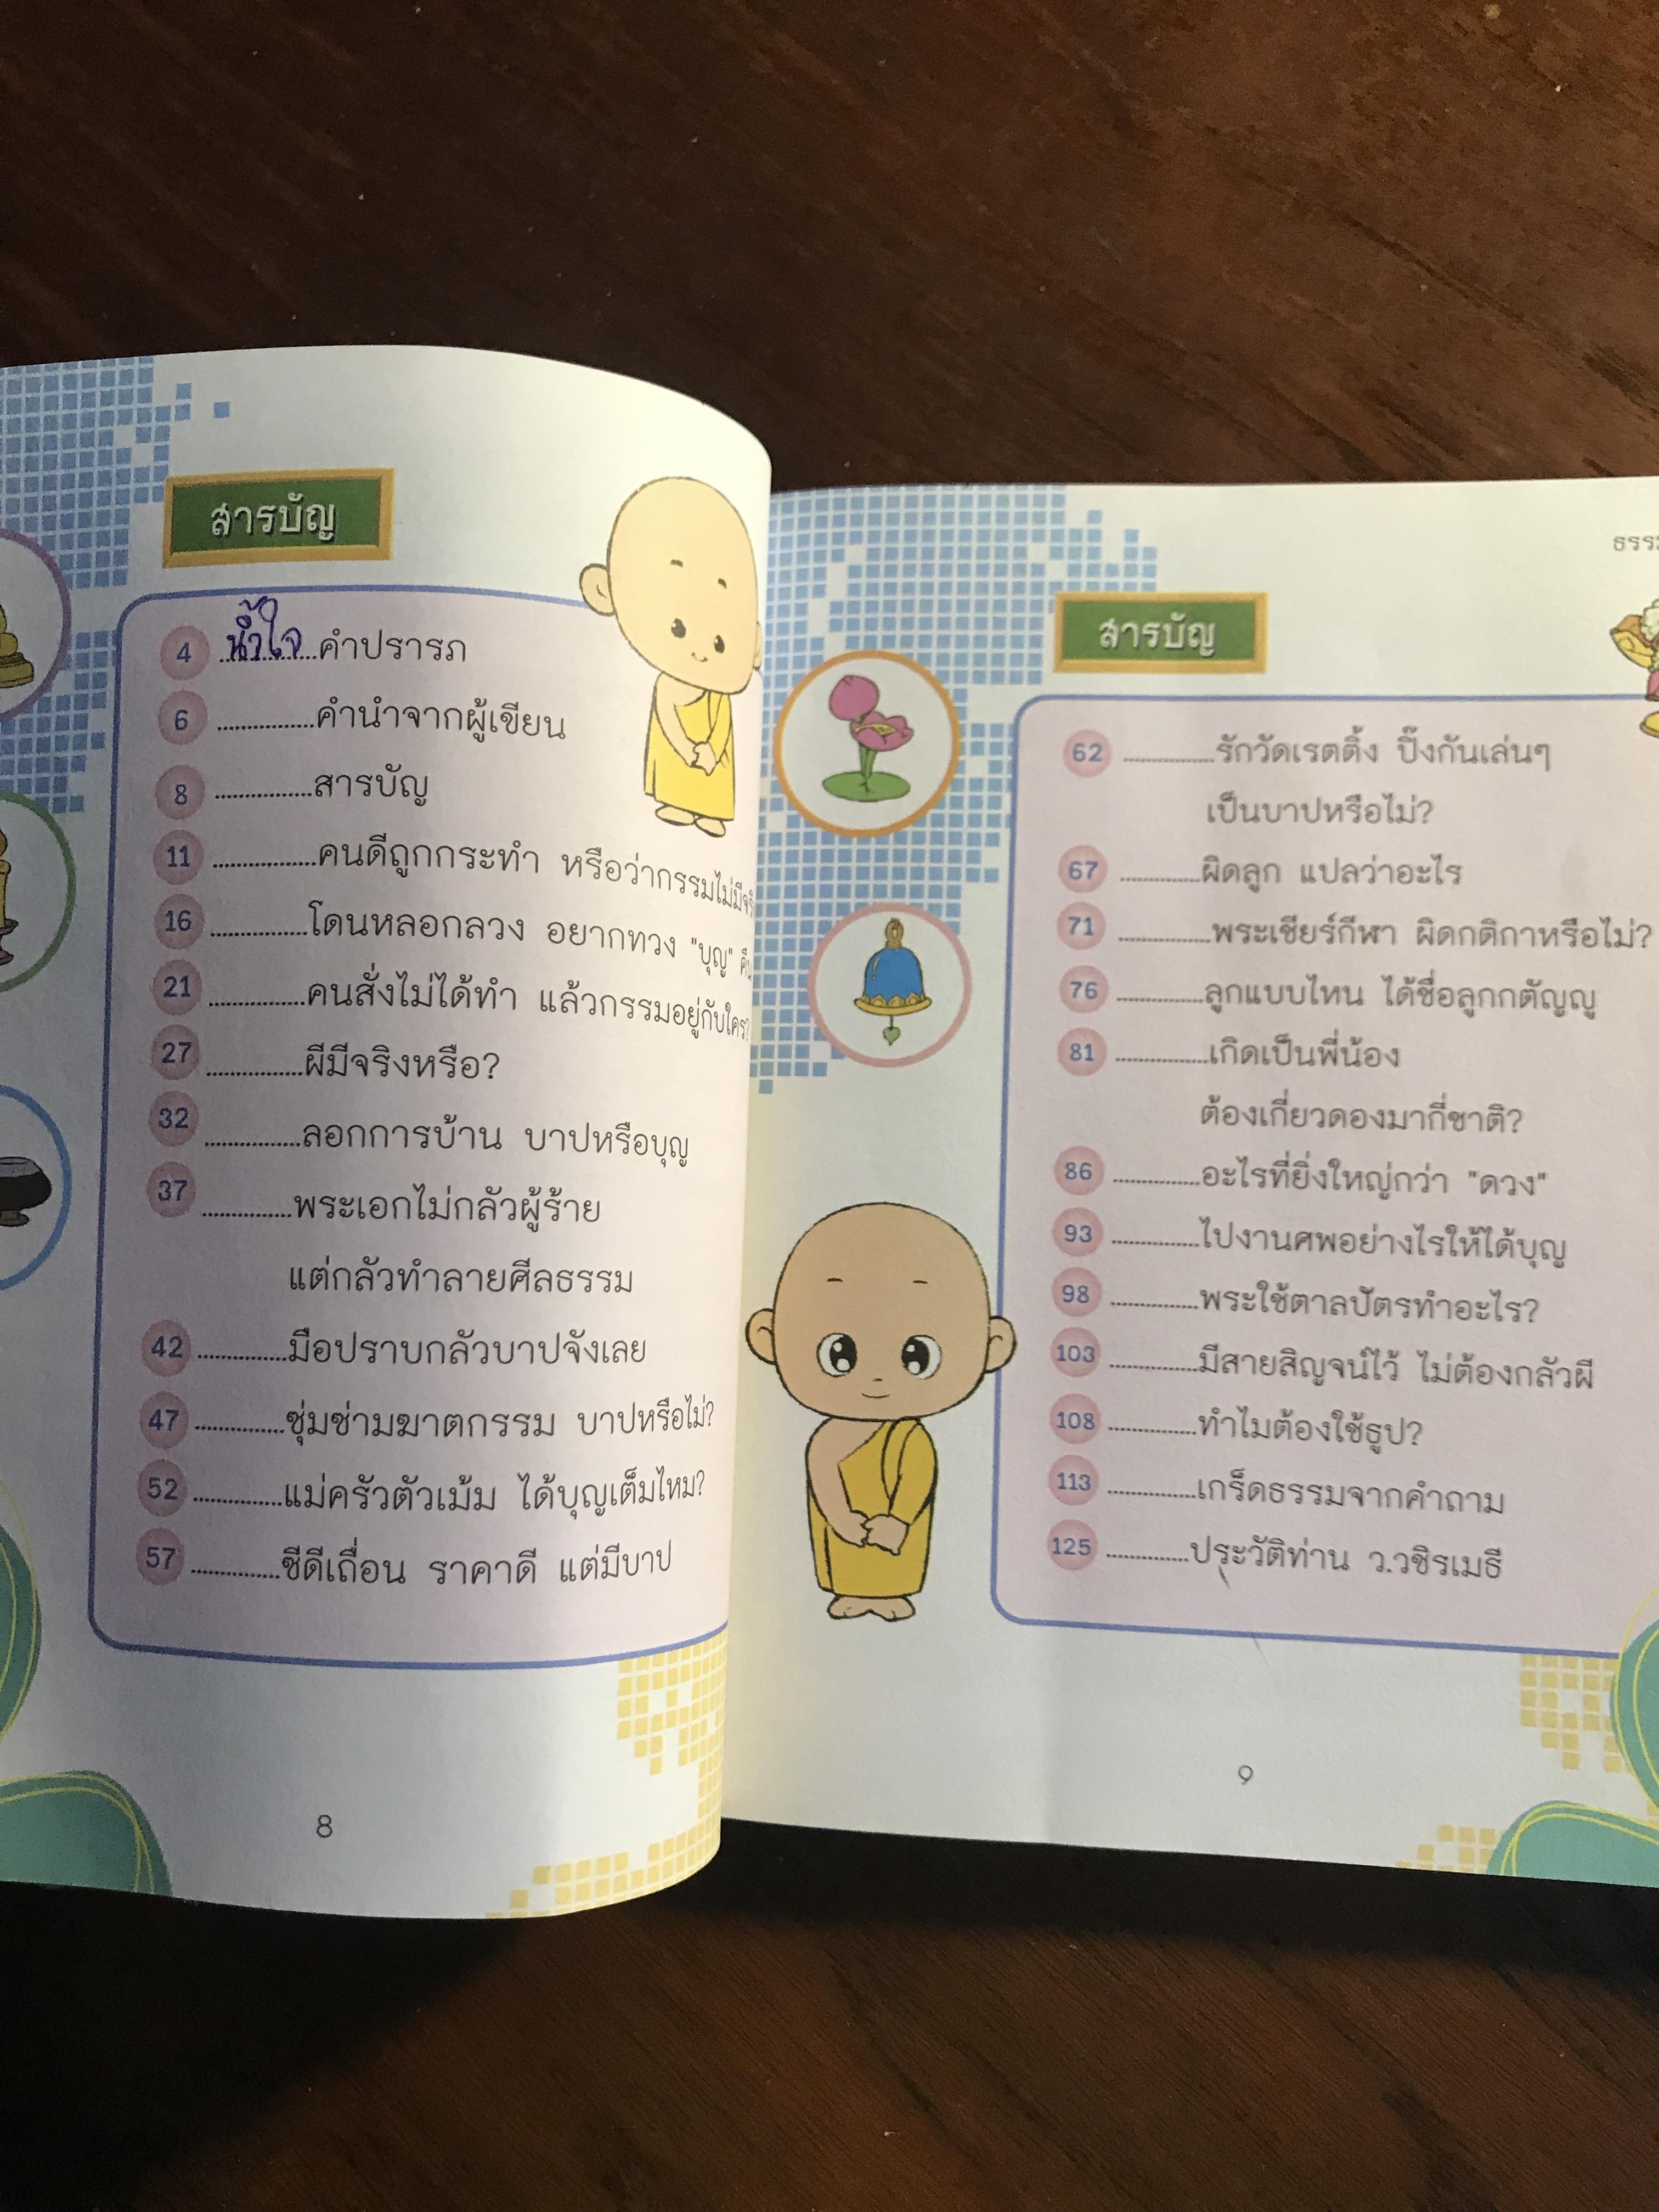 สารบัญ
4 น้ำใจ คำปรารภ
6 ..............คำนำจากผู้เขียน
8 ..............สารบัญ
11 ..............คนดีถูกกระทำ หรือว่ากรรมไม่มี
16 ..............โดนหลอกลวง อยากทวง "บุญ"
21 ..............คนสั่งไม่ได้ทำ แล้วกรรมอยู่กับใคร?
27 ..............ผีมีจริงหรือ?
32 ..............ลอกการบ้าน บาปหรือบุญ
37 ..............พระเอกไม่กลัวผู้ร้าย
แต่กลัวทำลายศีลธรรม
42 ..............มือปราบกลัวบาปจังเลย
47 ..............ซุ่มซ่ามฆาตกรรม บาปหรือไม่?
52 ..............แม่ครัวตัวเม้ม ได้บุญเต็มไหม?
57 ..............ซีดีเถื่อน ราคาดี แต่มีบาป
8
สารบัญ
62 ..............รักวัดเรตติ้ง ปิ๊งกันเล่นๆ
เป็นบาปหรือไม่?
67 ..............ผิดลูก แปลว่าอะไร
71 ..............พระเชียร์กีฬา ผิดกติกาหรือไม่?
76 ..............ลูกแบบไหน ได้ชื่อลูกกตัญญู
81 ..............เกิดเป็นพี่น้อง
ต้องเกี่ยวดองมากี่ชาติ?
86 ..............อะไรที่ยิ่งใหญ่กว่า "ดวง"
93 ..............ไปงานศพอย่างไรให้ได้บุญ
98 ..............พระใช้ตาลปัตรทำอะไร?
103 ..............มีสายสิญจน์ไว้ ไม่ต้องกลัวผี
108 ..............ทำไมต้องใช้ธูป?
113 ..............เกร็ดธรรมจากคำถาม
125 ..............ประวัติท่าน ว.วชิรเมธี
9